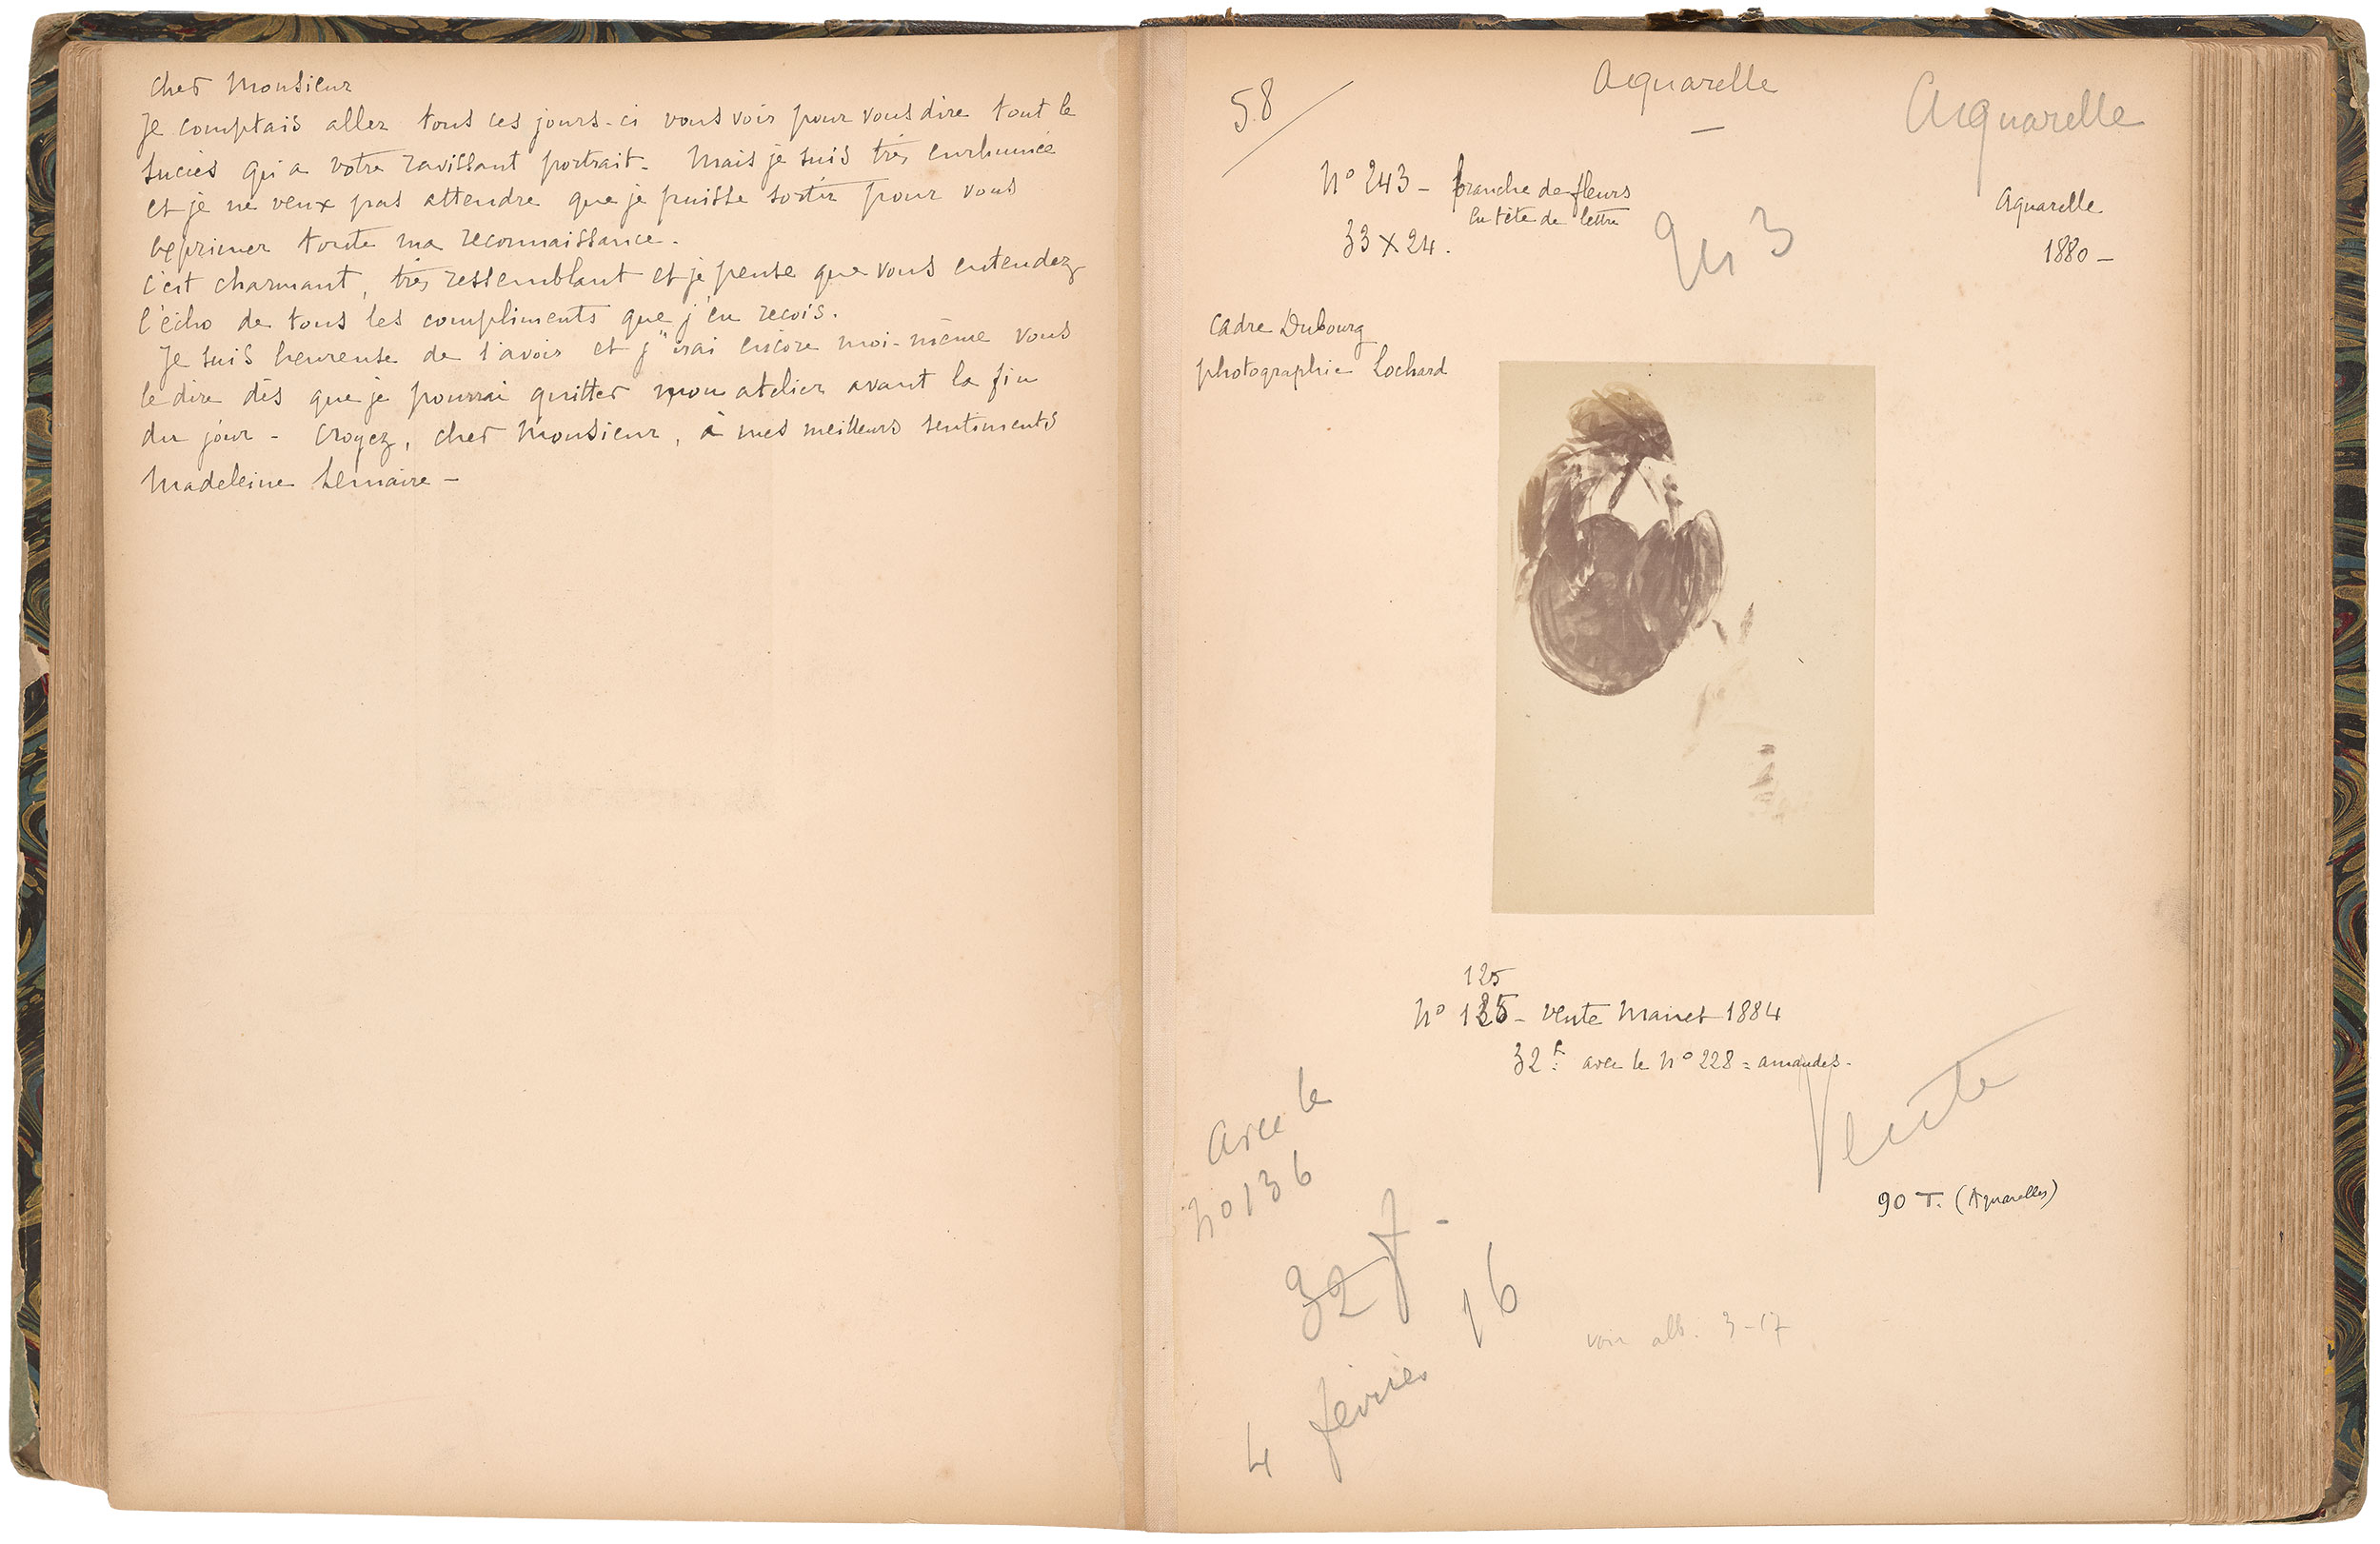 cher Monsieur
Je comptais aller tous ces jours-ci vous voir pour vous dire tout le
succès qu'a votre ravissant portrait - Mais je suis très enrhumée
et je ne veux pas attendre que je puisse sortir pour vous
exprimer toute ma reconnaissance.
c'est charmant, très ressemblant et je pense que vous entendez
l'écho de tous les compliments que j'en reçois.
Je suis heureuse de l'avoir et j'irai encore moi-même vous
le dire dès que je pourrai quitter mon atelier avant la fin
du jour - Croyez, cher Monsieur, à mes meilleurs sentiments
Madeleine Lemaire -
58
aquarelle
Aquarelle
N° 243 - branche de fleurs
en tête de lettre
33 X 24.
Aquarelle
1880 -
cadre Dubourg
photographie Lochard
125
N° 135 - vente Manet 1884
32 f. avec le N° 228 = amandes -
Vente
avec le
N° 136
90 T. (Aquarelles)
32 f -
16
voir alb. 3-17
4 février